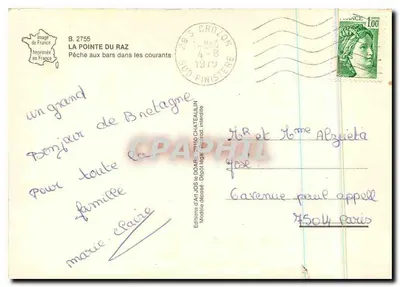 Image
de France
Imprimée
en France
B. 2755
LA POINTE DU RAZ
Pêche aux bars dans les courants
29 S CROZON
4-8
1979
SUD-FINISTERE
FRANCE
1,00
un grand
Bonjour de Bretagne
pour toute la
famille
marie-claire
Editions d'Art JOS le DOARE CHATEAULIN
Modèle déposé - Dépôt légal - interdite
CPARAMA
Mr et Mme Alzuieta
José
6 avenue paul appell
75014 Paris